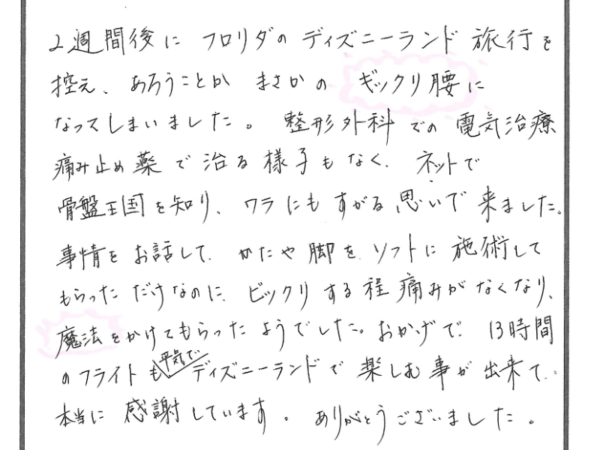 2週間後に フロリダのディズニーランド 旅行を
控え、あろうことか まさかの ギックリ腰に
なってしまいました。 整形外科での 電気治療
痛み止め薬で治る様子もなく、ネットで
骨盤王国を知り、ワラにもすがる思いで来ました。
事情をお話して、かたや脚をソフトに施術して
もらっただけなのに、ビックリする程痛みがなくなり、
魔法をかけてもらったようでした。おかげで 13時間
のフライトも平気で ディズニーランドで楽しむ事が出来て、
本当に感謝しています。 ありがとうございました。